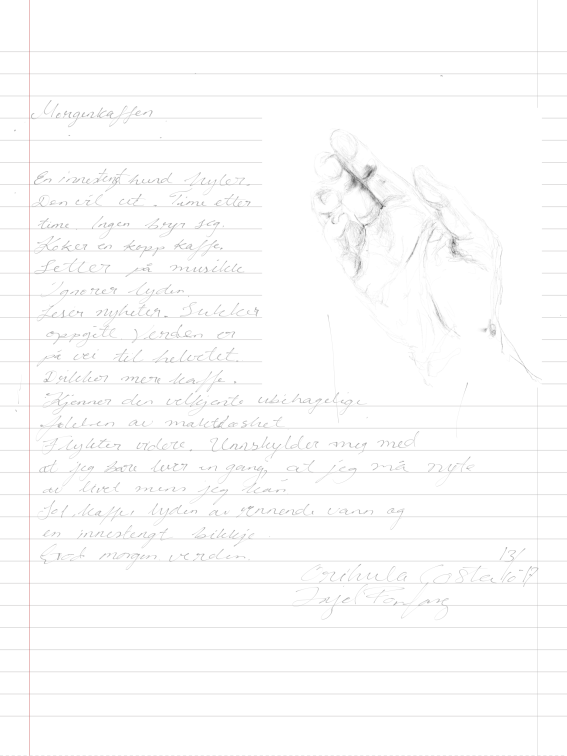 Morgenkaffen
En innestengt hund hyler.
Den vil ut. Time etter
time. Ingen bryr seg.
Koker en kopp kaffe.
Setter på musikk
Ignorer lyden
Leser nyheter. Sukker
oppgitt verden er
på vei til helvetet.
Drikker mere kaffe.
Kjenner den velkjente ubehagelige
følelsen av maktløshet
Flykter videre. Unnskylder meg med
at jeg bare lever en gang, at jeg må nyte
av livet mens jeg kan
Sol, kaffe lyden av rennende vann og
en innestengt bikkje.
God morgen verden.
13/